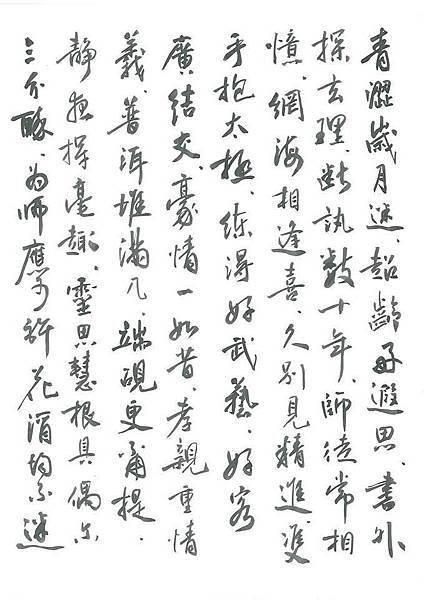 青澀歲月迷、超齡好遐思、書外
探玄理、斷訊數十年、師徒常相
憶、網海相逢喜、久別見精進、雙
手抱太極、練得好武藝、好客
廣結交、豪情一如昔、孝親重情
義、普洱堆滿几、端硯更甭提、
靜夜揮毫趣、靈思慧根具、偶尔
三分醉、为師應予許、花酒均不迷